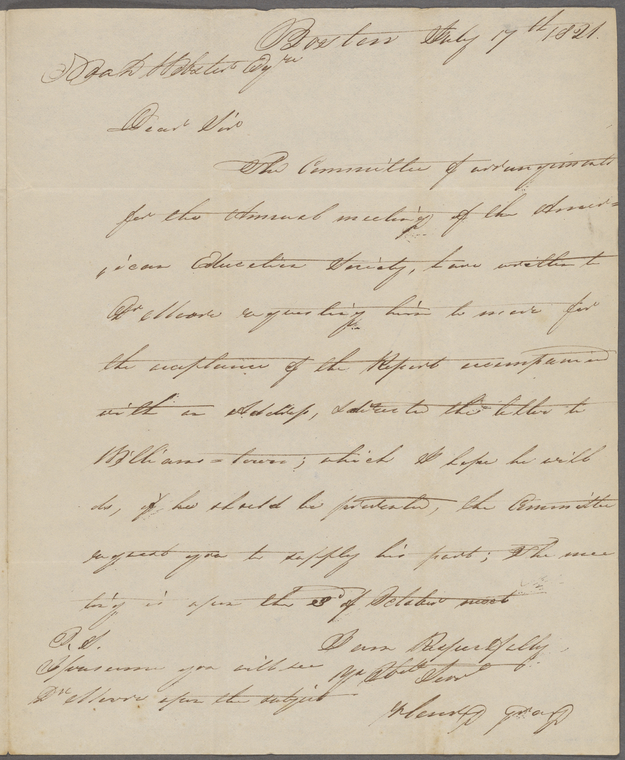 Boston July 17th 1821.
Noah Webster Esqre
Dear Sir
The Committee of arrangements
for the Annual meeting of the Amer=
ican Education Society, have written to
Dr Moore requesting him to move for
the acceptance of the Report accompanied
with an Address, & directed the letter to
Williams=town; which I hope he will
do, if he should be prevented, the Committee
request you to supply his part; The mee
ting is upon the 3d of October next
I am Respectfully
Yr Obdt Servt
Henry Gray
P.S.
I presume you will see
Dr Moore upon the subject